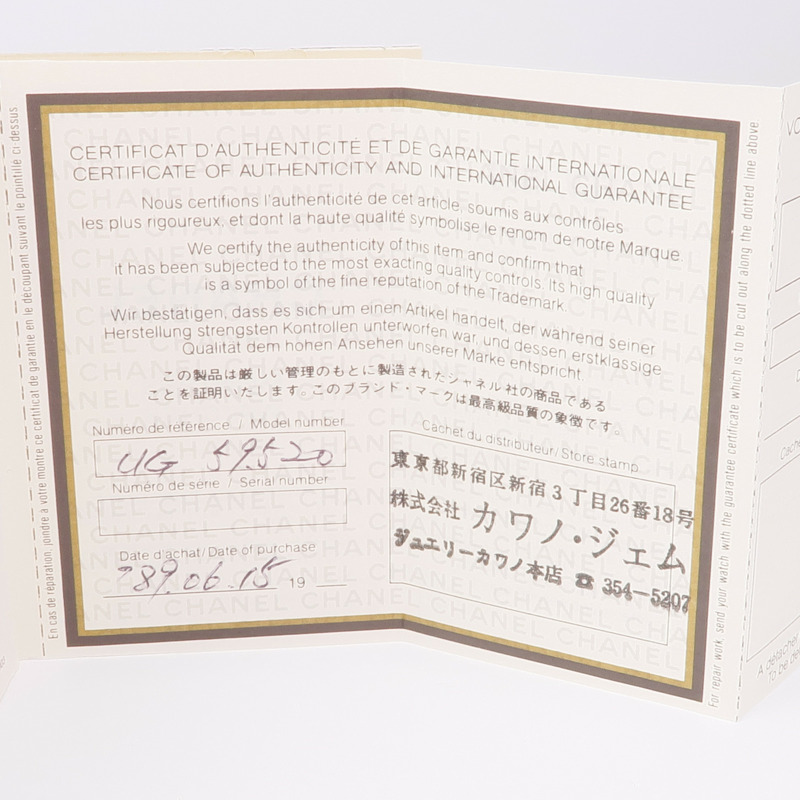 CERTIFICAT D'AUTHENTICITÉ ET DE GARANTIE INTERNATIONALE
CERTIFICATE OF AUTHENTICITY AND INTERNATIONAL GUARANTEE
Nous certifions l'authenticité de cet article, soumis aux contrôles
les plus rigoureux, et dont la haute qualité symbolise le renom de notre Marque.
We certify the authenticity of this item and confirm that
it has been subjected to the most exacting quality controls. Its high quality
is a symbol of the fine reputation of the Trademark.
Wir bestätigen, dass es sich um einen Artikel handelt, der während seiner
Herstellung strengsten Kontrollen unterworfen war, und dessen erstklassige
Qualität dem hohen Ansehen unserer Marke entspricht.
この製品は厳しい管理のもとに製造されたシャネル社の商品である
ことを証明いたします。このブランド・マークは最高級品質の象徴です。
Numéro de référence / Model number
UG 59.520
Numéro de série / Serial number
Date d'achat / Date of purchase
'89.06.15 19
Cachet du distributeur / Store stamp
東京都新宿区新宿3丁目26番18号
株式会社 カワノ・ジェム
ジュエリーカワノ本店 ☎ 354-5207
En cas de réparation, joindre à votre montre ce certificat de garantie en le découpant suivant le pointillé ci-dessus
For repair work, send your watch with the guarantee certificate which is to be cut out along the dotted line above
CHANEL
A détacher
To be de